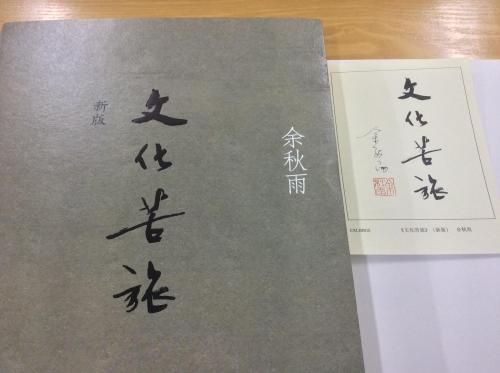 新版
文化苦旅
余秋雨
文化苦旅
余秋雨
EXLIBRIS
《文化苦旅》（新版） 余秋雨